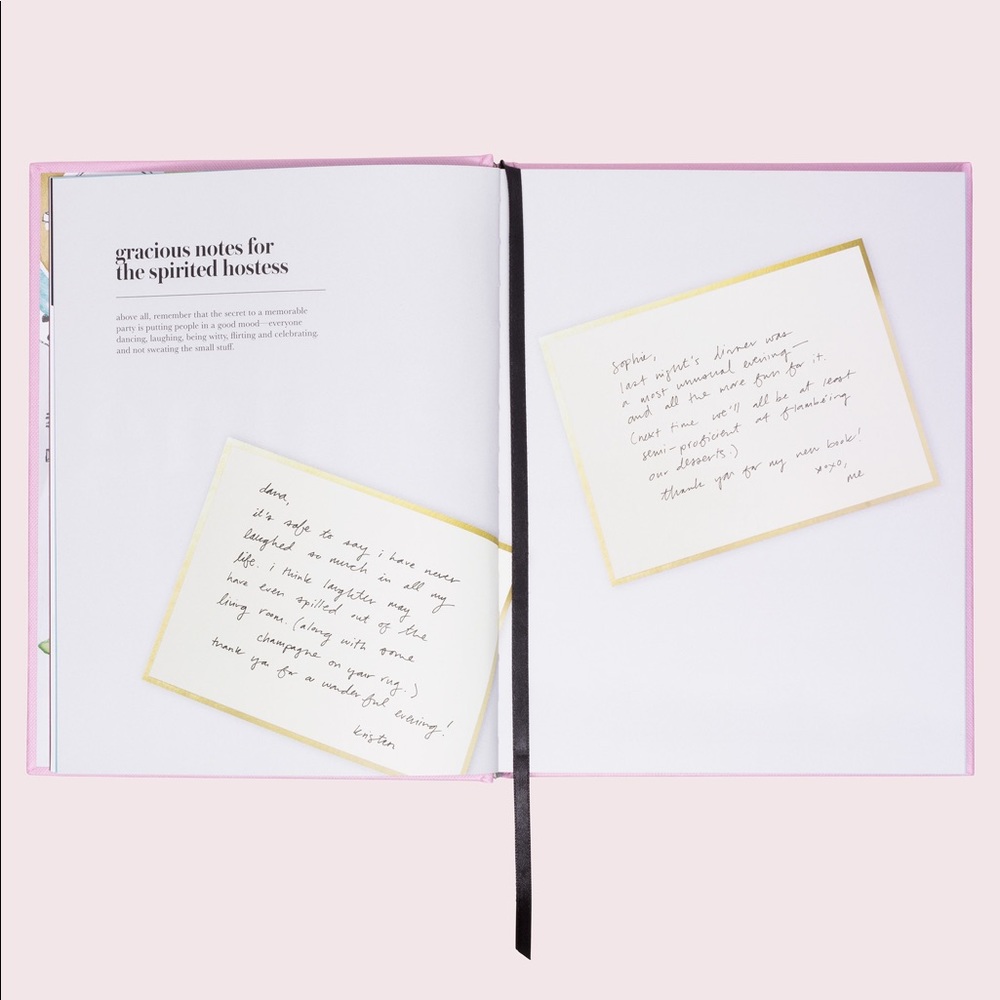 gracious notes for
the spirited hostess
above all, remember that the secret to a memorable
party is putting people in a good mood—everyone
dancing, laughing, being witty, flirting and celebrating.
and not sweating the small stuff.
dava,
it's safe to say i have never
laughed so much in all my
life. i think laughter may
have even spilled out of the
living room. (along with some
champagne on your rug.)
thank you for a wonderful evening!
kristen
sophie,
last night's dinner was
a most unusual evening—
and all the more fun for it.
(next time we'll all be at least
semi-proficient at flambéing
our desserts.)
thank you for my new book!
xoxo,
me